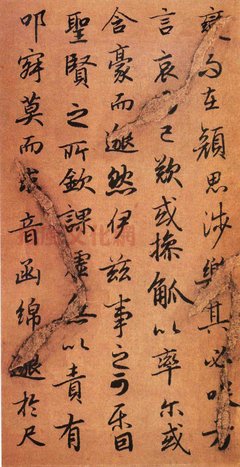 變而在顏思涉樂其必咲方
言哀而已歎或操觚以率尔或
含豪而邈然伊茲事之可樂固
聖賢之所欽課虛無以責有
叩寂寞而求音函綿邈於尺